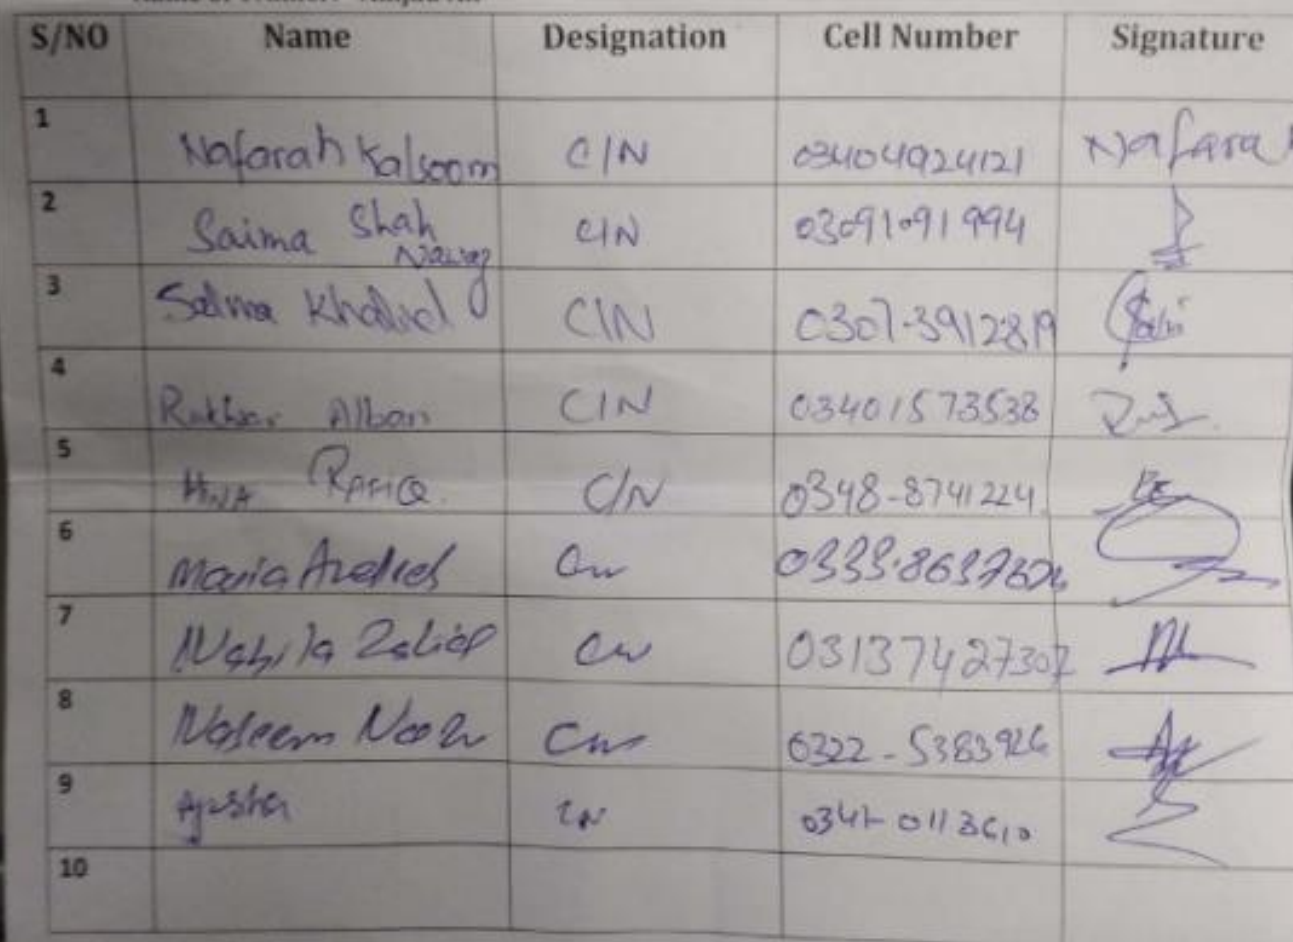 S/NO Name Designation Cell Number Signature
1 Nafarah Kalsoom C/N 03404924121 Nafara
2 Saima Shah Nawaz C/N 03091091994
3 Salma Khalid C/N 0307-3912819
4 Alban C/N 03401573538
5 HINA RAFIQ C/N 0348-8741224
6 Maria CN
7 Nabila CN 03137427307
8 Naseem Noor CN 0322-5383926
9 Ayesha CN
10